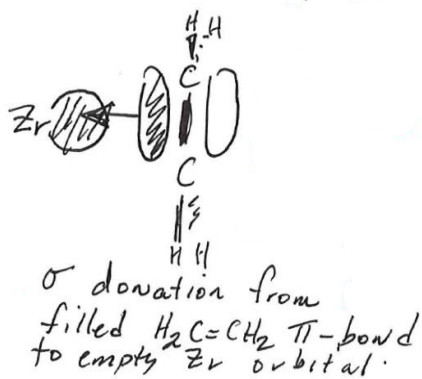 H H
C
Zr
C
H H
σ donation from
filled H₂C=CH₂ π-bond
to empty Zr orbital.